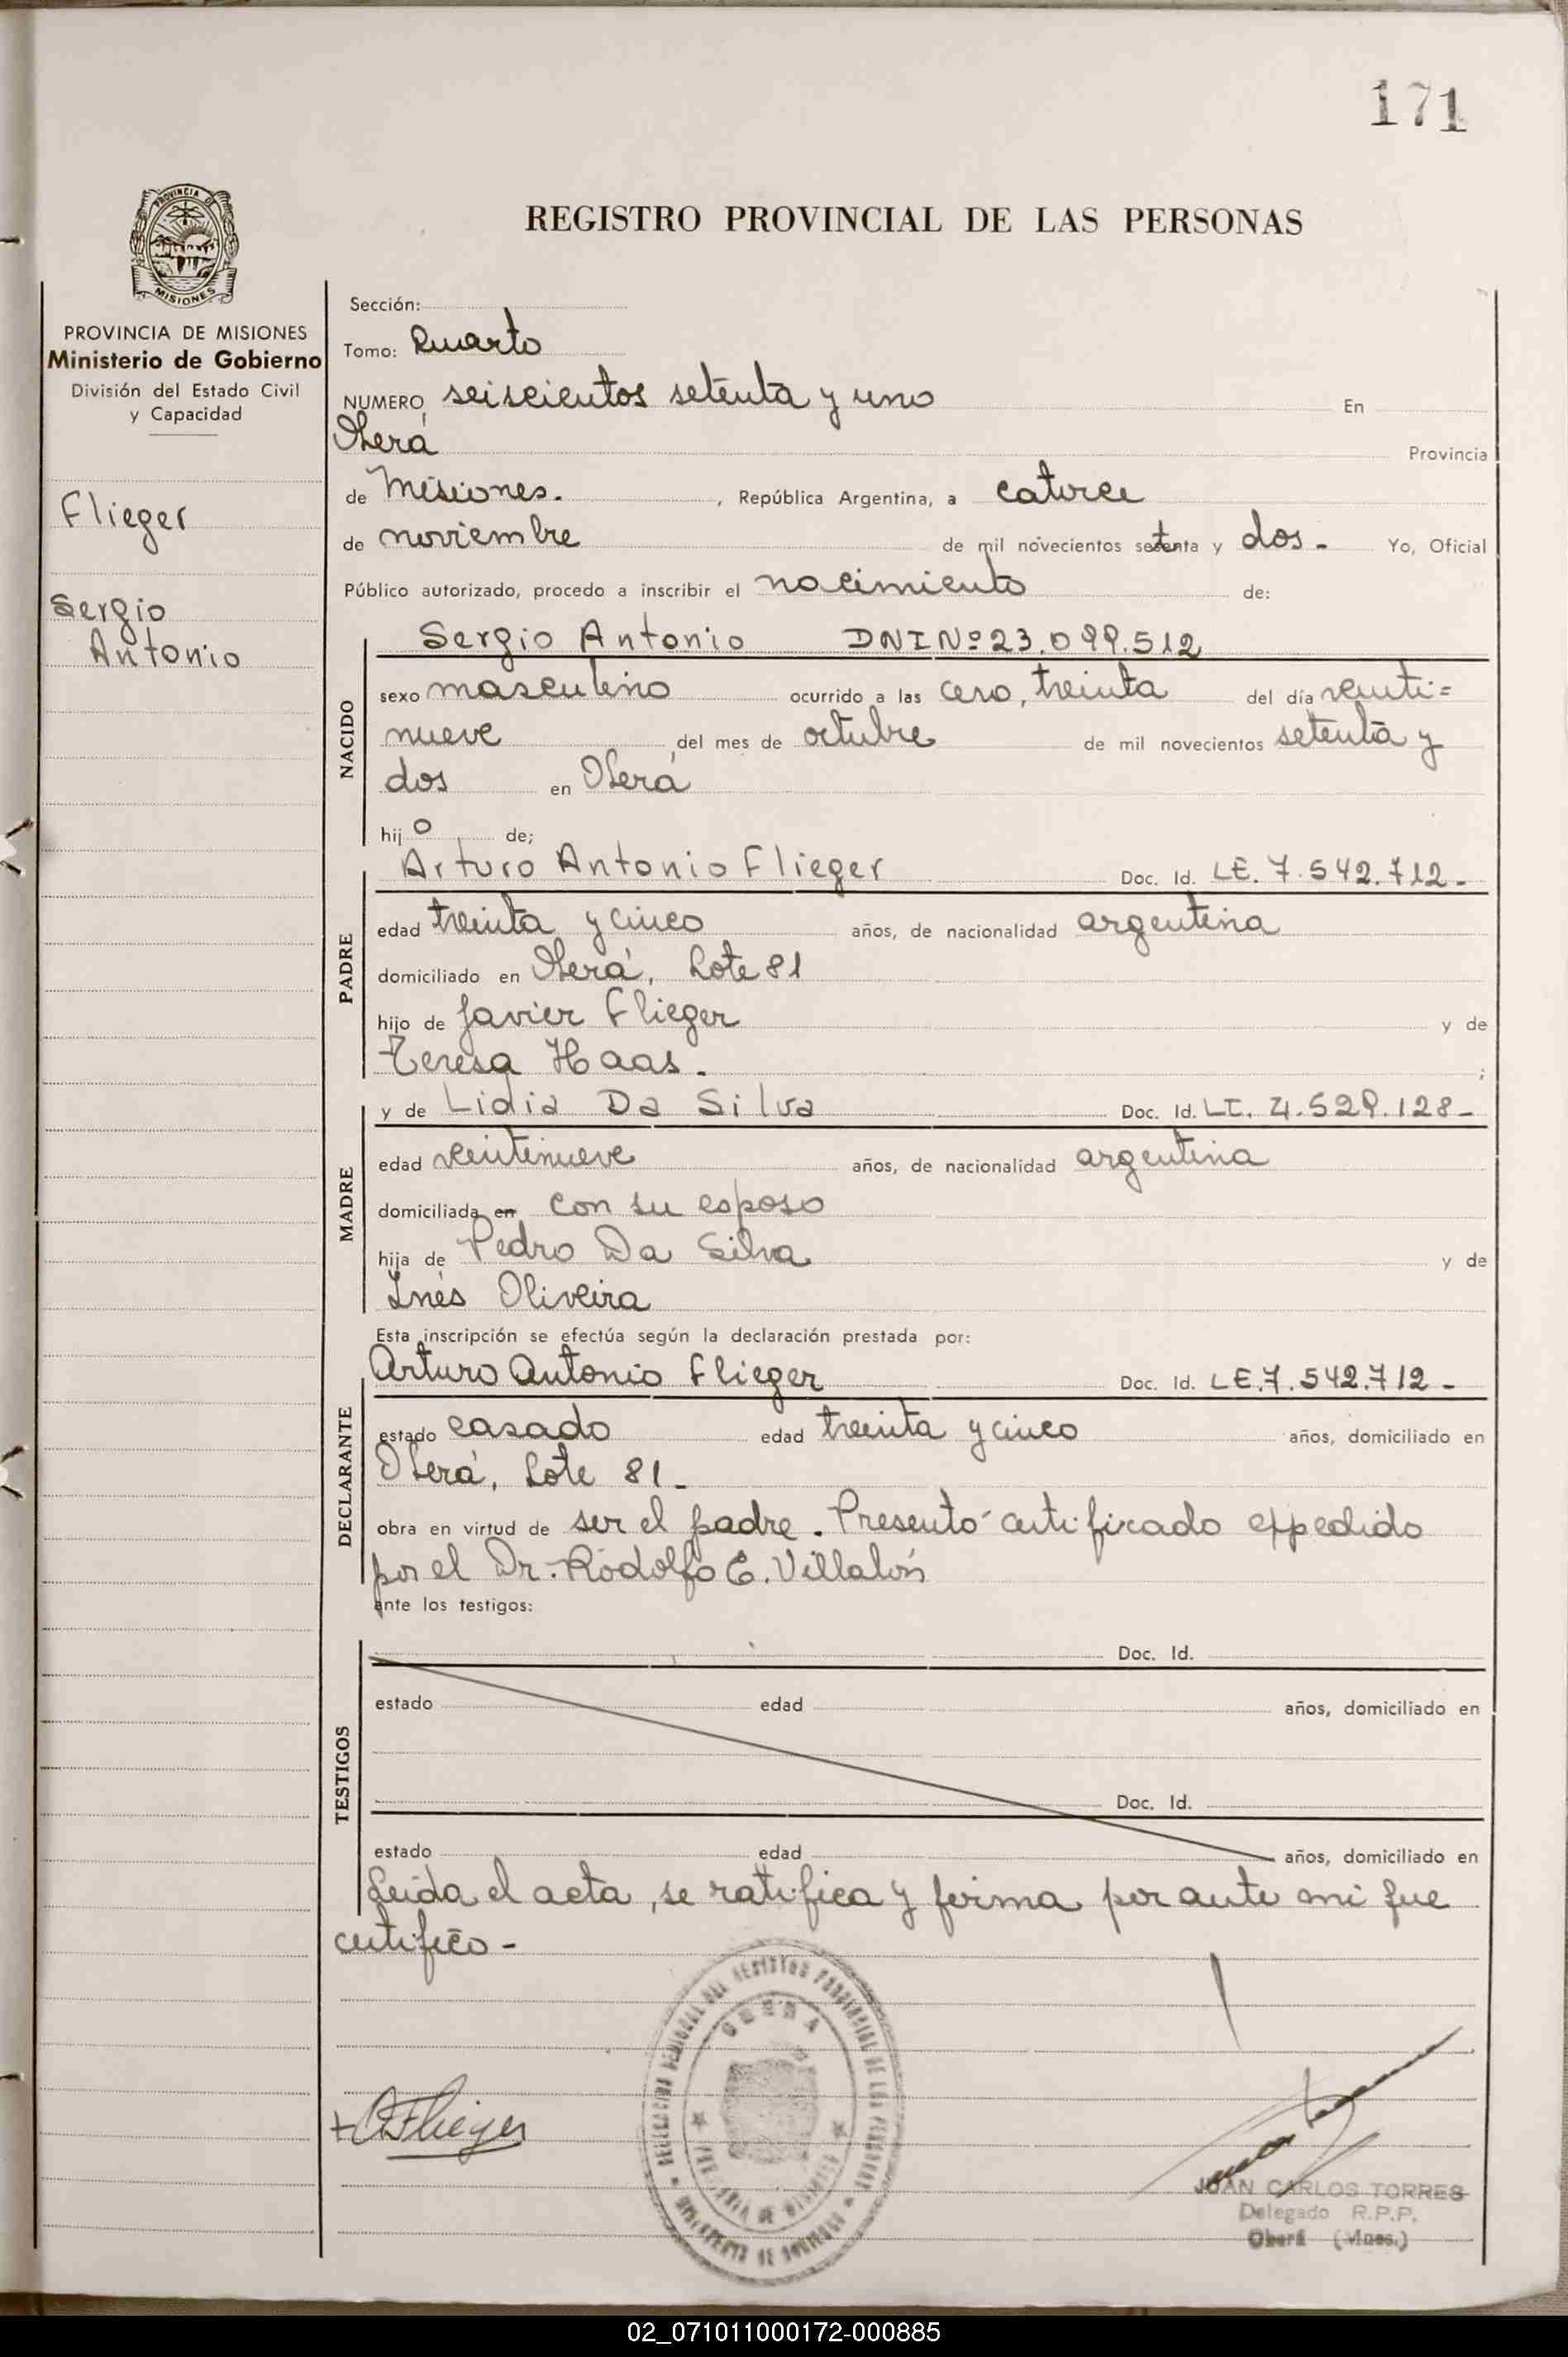 171
PROVINCIA DE
MISIONES
REGISTRO PROVINCIAL DE LAS PERSONAS
PROVINCIA DE MISIONES
Ministerio de Gobierno
División del Estado Civil
y Capacidad
Flieger
Sergio
Antonio
Sección:
Tomo: Cuarto
NUMERO seiscientos setenta y uno En
Oberá Provincia
de Misiones. , República Argentina, a catorce
de noviembre de mil novecientos setenta y dos. Yo, Oficial
Público autorizado, procedo a inscribir el nacimiento de:
NACIDO
Sergio Antonio DNI Nº 23.099.512
sexo masculino ocurrido a las cero, treinta del día veinti=
nueve del mes de octubre de mil novecientos setenta y
dos en Oberá
hijo de;
PADRE
Arturo Antonio Flieger Doc. Id. LE. 7.542.712-
edad treinta y cinco años, de nacionalidad argentina
domiciliado en Oberá, Lote 81
hijo de Javier Flieger y de
Teresa Haas. ;
MADRE
y de Lidia Da Silva Doc. Id. LC. 4.529.128-
edad veintinueve años, de nacionalidad argentina
domiciliada en con su esposo
hija de Pedro Da Silva y de
Inés Oliveira
Esta inscripción se efectúa según la declaración prestada por:
DECLARANTE
Arturo Antonio Flieger Doc. Id. LE.7.542.712-
estado casado edad treinta y cinco años, domiciliado en
Oberá, Lote 81-
obra en virtud de ser el padre. Presentó certificado expedido
por el Dr. Rodolfo E. Villalón
ante los testigos:
TESTIGOS
Doc. Id.
estado edad años, domiciliado en
Doc. Id.
estado edad años, domiciliado en
Leida el acta, se ratifica y firma por ante mi que
certifico-
A Flieger
OBERA
JUAN CARLOS TORRES
Delegado R.P.P.
Oberá (Mnes.)
02_071011000172-000885